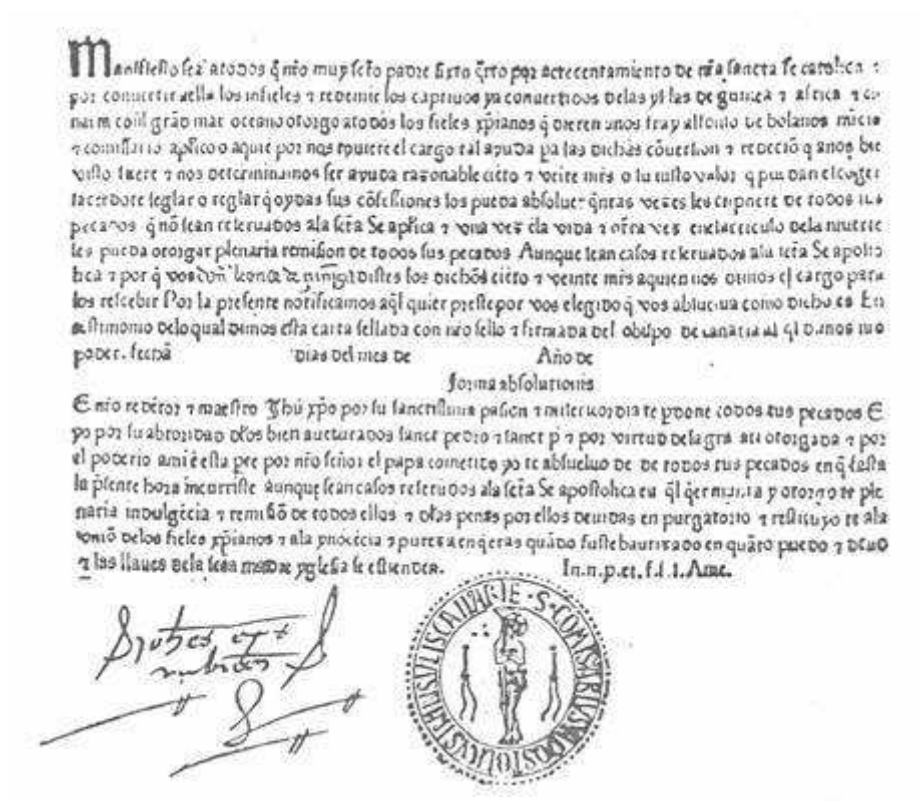 Manifiesto sea atodos q̃ nr̃o muy sctõ padre Sixto q̃rto por acrecentamiento de nr̃a sancta fe catholica ⁊
por conuertir aella los infieles ⁊ redemir los captiuos ya conuertidos delas yslas de guinea ⁊ africa ⁊
grãd mar oceano otorgo atodos los fieles xp̃ianos q̃ dieren anos fray alfonso de bolanos nũcio
⁊ comissario ap̃lico o aquiẽ por nos touiere el cargo tal ayuda pa las dichas cõuersion ⁊ redẽciõ q̃ anos biẽ
visto fuere ⁊ nos determinamos ser ayuda rasonable ciẽto ⁊ veite mr̃s o su iusto valor q̃ puedan escoger
sacerdote seglar o reglar q̃ oydas sus cõfessiones los pueda absoluer q̃ntas veses les cõpliere de todos sus
pecados q̃ nõ sean reseruados ala sctã Se ap̃lica ⁊ vna ves ẽla vida ⁊ otra ves enelarticulo dela muerte
les pueda otorgar plenaria remission de todos sus pecados Aunque sean casos reseruados ala sctã Se aposto
lica ⁊ por q̃ vos distes los dichos ciẽto ⁊ veinte mr̃s aquien nos dimos el cargo para
los rescebir Por la presente notificamos aq̃l quier preste por vos elegido q̃ vos absuelua como dicho es En
testimonio delo qual dimos esta carta sellada con nr̃o sello ⁊ firmada del obispo de canaria al q̃l dimos nr̃o
poder. fecha dias del mes de Año de
forma absolutionis
E nr̃o redẽtor ⁊ maestro Jhũ xp̃o por su sanctissima pasion ⁊ misericordia te p̃done todos tus pecados E
yo por su abtoridad dlos bien auẽturados sanct pedro ⁊ sanct p̃ ⁊ por virtud dela grã ati otorgada ⁊ por
el poderio ami ẽesta pte por nr̃o señor el papa cometido yo te absueluo de de todos tus pecados en q̃ fasta
la p̃sente hora incurriste aunque sean casos reseruados ala sctã Se apostolica y otorgo te ple
naria indulgẽcia ⁊ remissiõ de todos ellos ⁊ dlas penas por ellos deuidas en purgatorio ⁊ restituyo te ala
vniõ delos fieles xp̃ianos ⁊ ala ynocẽcia ⁊ puresa en q̃ eras quãdo fuste bautizado en quãto puedo ⁊ deuo
⁊ las llaues dela sctã madre yglesia se estienden. In.n.p.et.f.⁊.s.s.Ame.
S COMISARIUS APOSTOLICUS